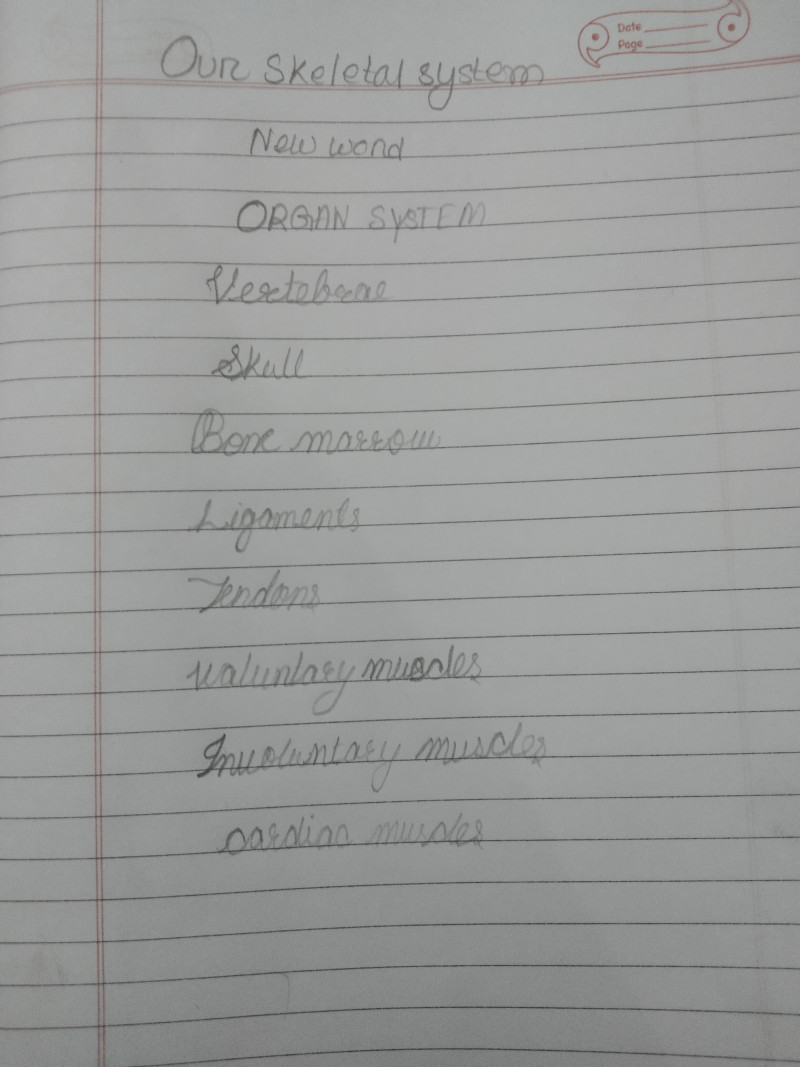 Date
Page
Our skeletal system
New word
ORGAN SYSTEM
Vertebrae
Skull
Bone marrow
Ligaments
Tendons
Valuntary muscles
Involuntary muscles
cardiac muscles